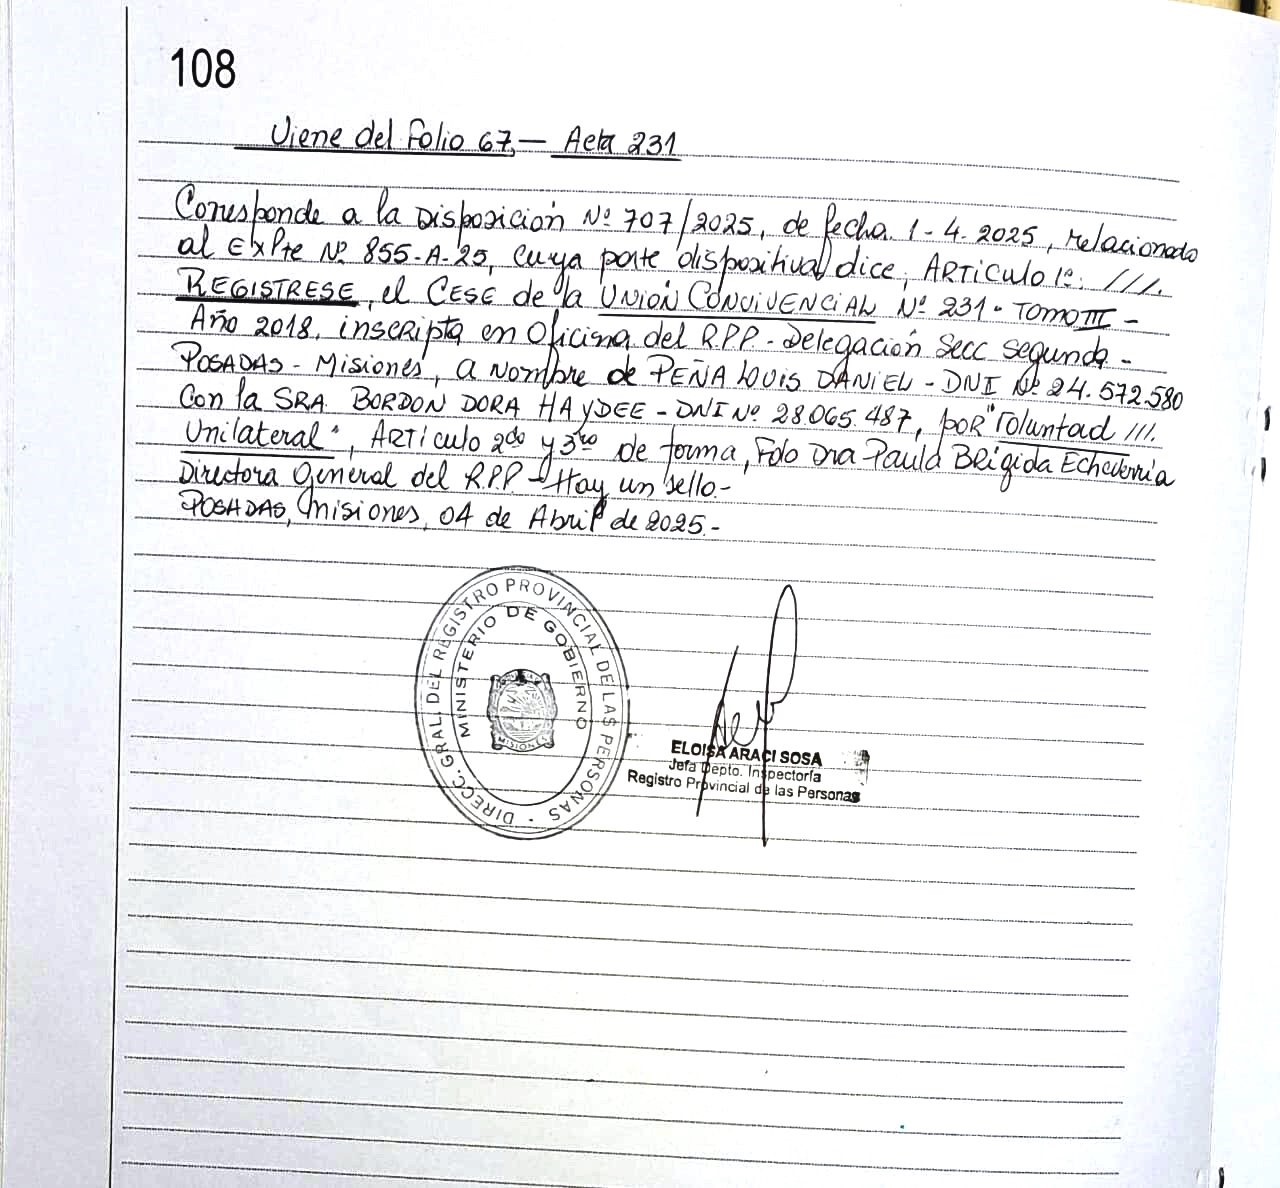 108
Viene del Folio 67,— Acta 231
Corresponde a la Disposición Nº 707/2025, de fecha 1-4-2025, relacionado
al Expte Nº 855-A-25, cuya parte dispositiva dice, ARTICULO 1º: ///.
REGISTRESE, el CESE de la UNIÓN CONVIVENCIAL Nº 231 - TOMO III -
Año 2018, inscripta en Oficina del R.P.P. - Delegación Secc Segunda -
POSADAS - Misiones, a Nombre de PEÑA LOUIS DANIEL - DNI Nº 24.572.580
Con la SRA BORDON DORA HAYDEE - DNI Nº 28.065.487, por "Voluntad ///.
Unilateral", ARTÍCULO 2do y 3ro de forma, Fdo Dra Paula Brigida Echeverria
Directora General del R.P.P - Hay un sello.-
POSADAS, Misiones, 04 de Abril de 2025.-
DIRECC. GRAL. DEL REGISTRO PROVINCIAL DE LAS PERSONAS -
MINISTERIO DE GOBIERNO
MISIONES
ELOISA ARACI SOSA
Jefa Depto. Inspectoría
Registro Provincial de las Personas